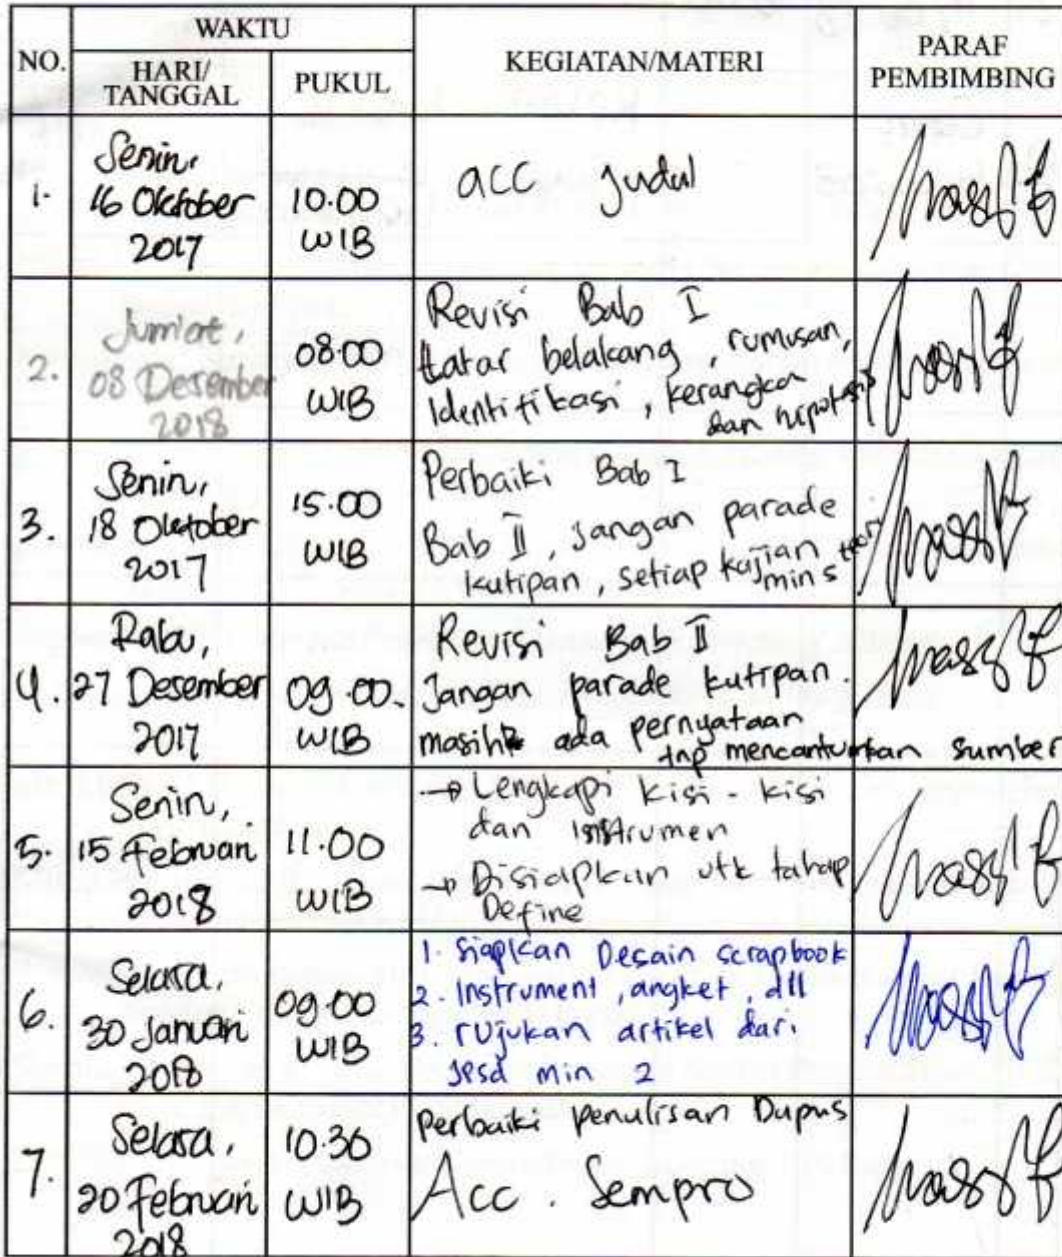 NO. WAKTU KEGIATAN/MATERI PARAF PEMBIMBING
HARI/TANGGAL PUKUL
1. Senin, 16 Oktober 2017 10.00 WIB acc judul
2. Jumiat, 08 Desember 2018 08.00 WIB Revisi Bab I
Latar belakang, rumusan,
Identifikasi, kerangka
dan hipotesis
3. Senin, 18 Oktober 2017 15.00 WIB Perbaiki Bab I
Bab II, Jangan parade
kutipan, setiap kajian
min 5 teori
4. Rabu, 27 Desember 2017 09.00 WIB Revisi Bab II
Jangan parade kutipan.
masih ada pernyataan
tnp mencantumkan sumber
5. Senin, 15 Februari 2018 11.00 WIB → Lengkapi kisi-kisi
dan Instrumen
→ Disiapkan utk tahap
Define
6. Selasa, 30 Januari 2018 09.00 WIB 1. Siapkan Desain scrapbook
2. Instrument, angket, dll
3. rujukan artikel dari
Jpsd min 2
7. Selasa, 20 Februari 2018 10.30 WIB Perbaiki penulisan Dapus
Acc. Sempro